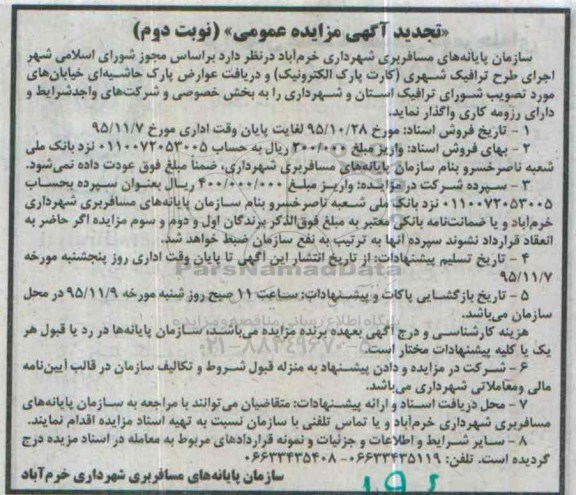 «تجدید آگهی مزایده عمومی» (نوبت دوم)
سازمان پایانه‌های مسافربری شهرداری خرم‌آباد درنظر دارد براساس مجوز شورای اسلامی شهر
اجرای طرح ترافیک شهری (کارت پارک الکترونیک) و دریافت عوارض پارک حاشیه‌ای خیابان‌های
مورد تصویب شورای ترافیک استان و شهرداری را به بخش خصوصی و شرکت‌های واجدشرایط و
دارای رزومه کاری واگذار نماید.
۱ - تاریخ فروش اسناد: مورخ ۹۵/۱۰/۲۸ لغایت پایان وقت اداری مورخ ۹۵/۱۱/۷
۲ - بهای فروش اسناد: واریز مبلغ ۲۰۰/۰۰۰ ریال به حساب ۰۱۱۰۰۷۲۰۵۳۰۰۵ نزد بانک ملی
شعبه ناصرخسرو بنام سازمان پایانه‌های مسافربری شهرداری، ضمنا مبلغ فوق عودت داده نمی‌شود.
۳ - سپرده شرکت در مزایده: واریز مبلغ ۴۰۰/۰۰۰/۰۰۰ ریال بعنوان سپرده بحساب
۰۱۱۰۰۷۲۰۵۳۰۰۵ نزد بانک ملی شعبه ناصرخسرو بنام سازمان پایانه‌های مسافربری شهرداری
خرم‌آباد و یا ضمانت‌نامه بانکی معتبر به مبلغ فوق‌الذکر برندگان اول و دوم و سوم مزایده اگر حاضر به
انعقاد قرارداد نشوند سپرده آنها به ترتیب به نفع سازمان ضبط خواهد شد.
۴ - تاریخ تسلیم پیشنهادات: از تاریخ انتشار این آگهی تا پایان وقت اداری روز پنجشنبه مورخه
۹۵/۱۱/۷
ParsNamadData
۵ - تاریخ بازگشایی پاکات و پیشنهادات: ساعت ۱۱ صبح روز شنبه مورخه ۹۵/۱۱/۹ در محل
سازمان می‌باشد.
پایگاه اطلاع رسانی مناقصه و مزایده
هزینه کارشناسی و درج آگهی بعهده برنده مزایده می‌باشد، سازمان پایانه‌ها در رد یا قبول هر
یک یا کلیه پیشنهادات مختار است.
۰۲۱-۸۸۳۴۹۶۷۰-۵
۶ - شرکت در مزایده و دادن پیشنهاد به منزله قبول شروط و تکالیف سازمان در قالب آیین‌نامه
مالی ومعاملاتی شهرداری می‌باشد.
۷ - محل دریافت اسناد و ارائه پیشنهادات: متقاضیان می‌توانند با مراجعه به سازمان پایانه‌های
مسافربری شهرداری خرم‌آباد و یا تماس تلفنی با سازمان نسبت به تهیه اسناد مزایده اقدام نمایند.
۸ - سایر شرایط و اطلاعات و جزئیات و نمونه قراردادهای مربوط به معامله در اسناد مزیده درج
گردیده است. تلفن: ۰۶۶۳۳۴۳۵۱۱۹- ۰۶۶۳۳۴۳۵۴۰۸
سازمان پایانه‌های مسافربری شهرداری خرم‌آباد